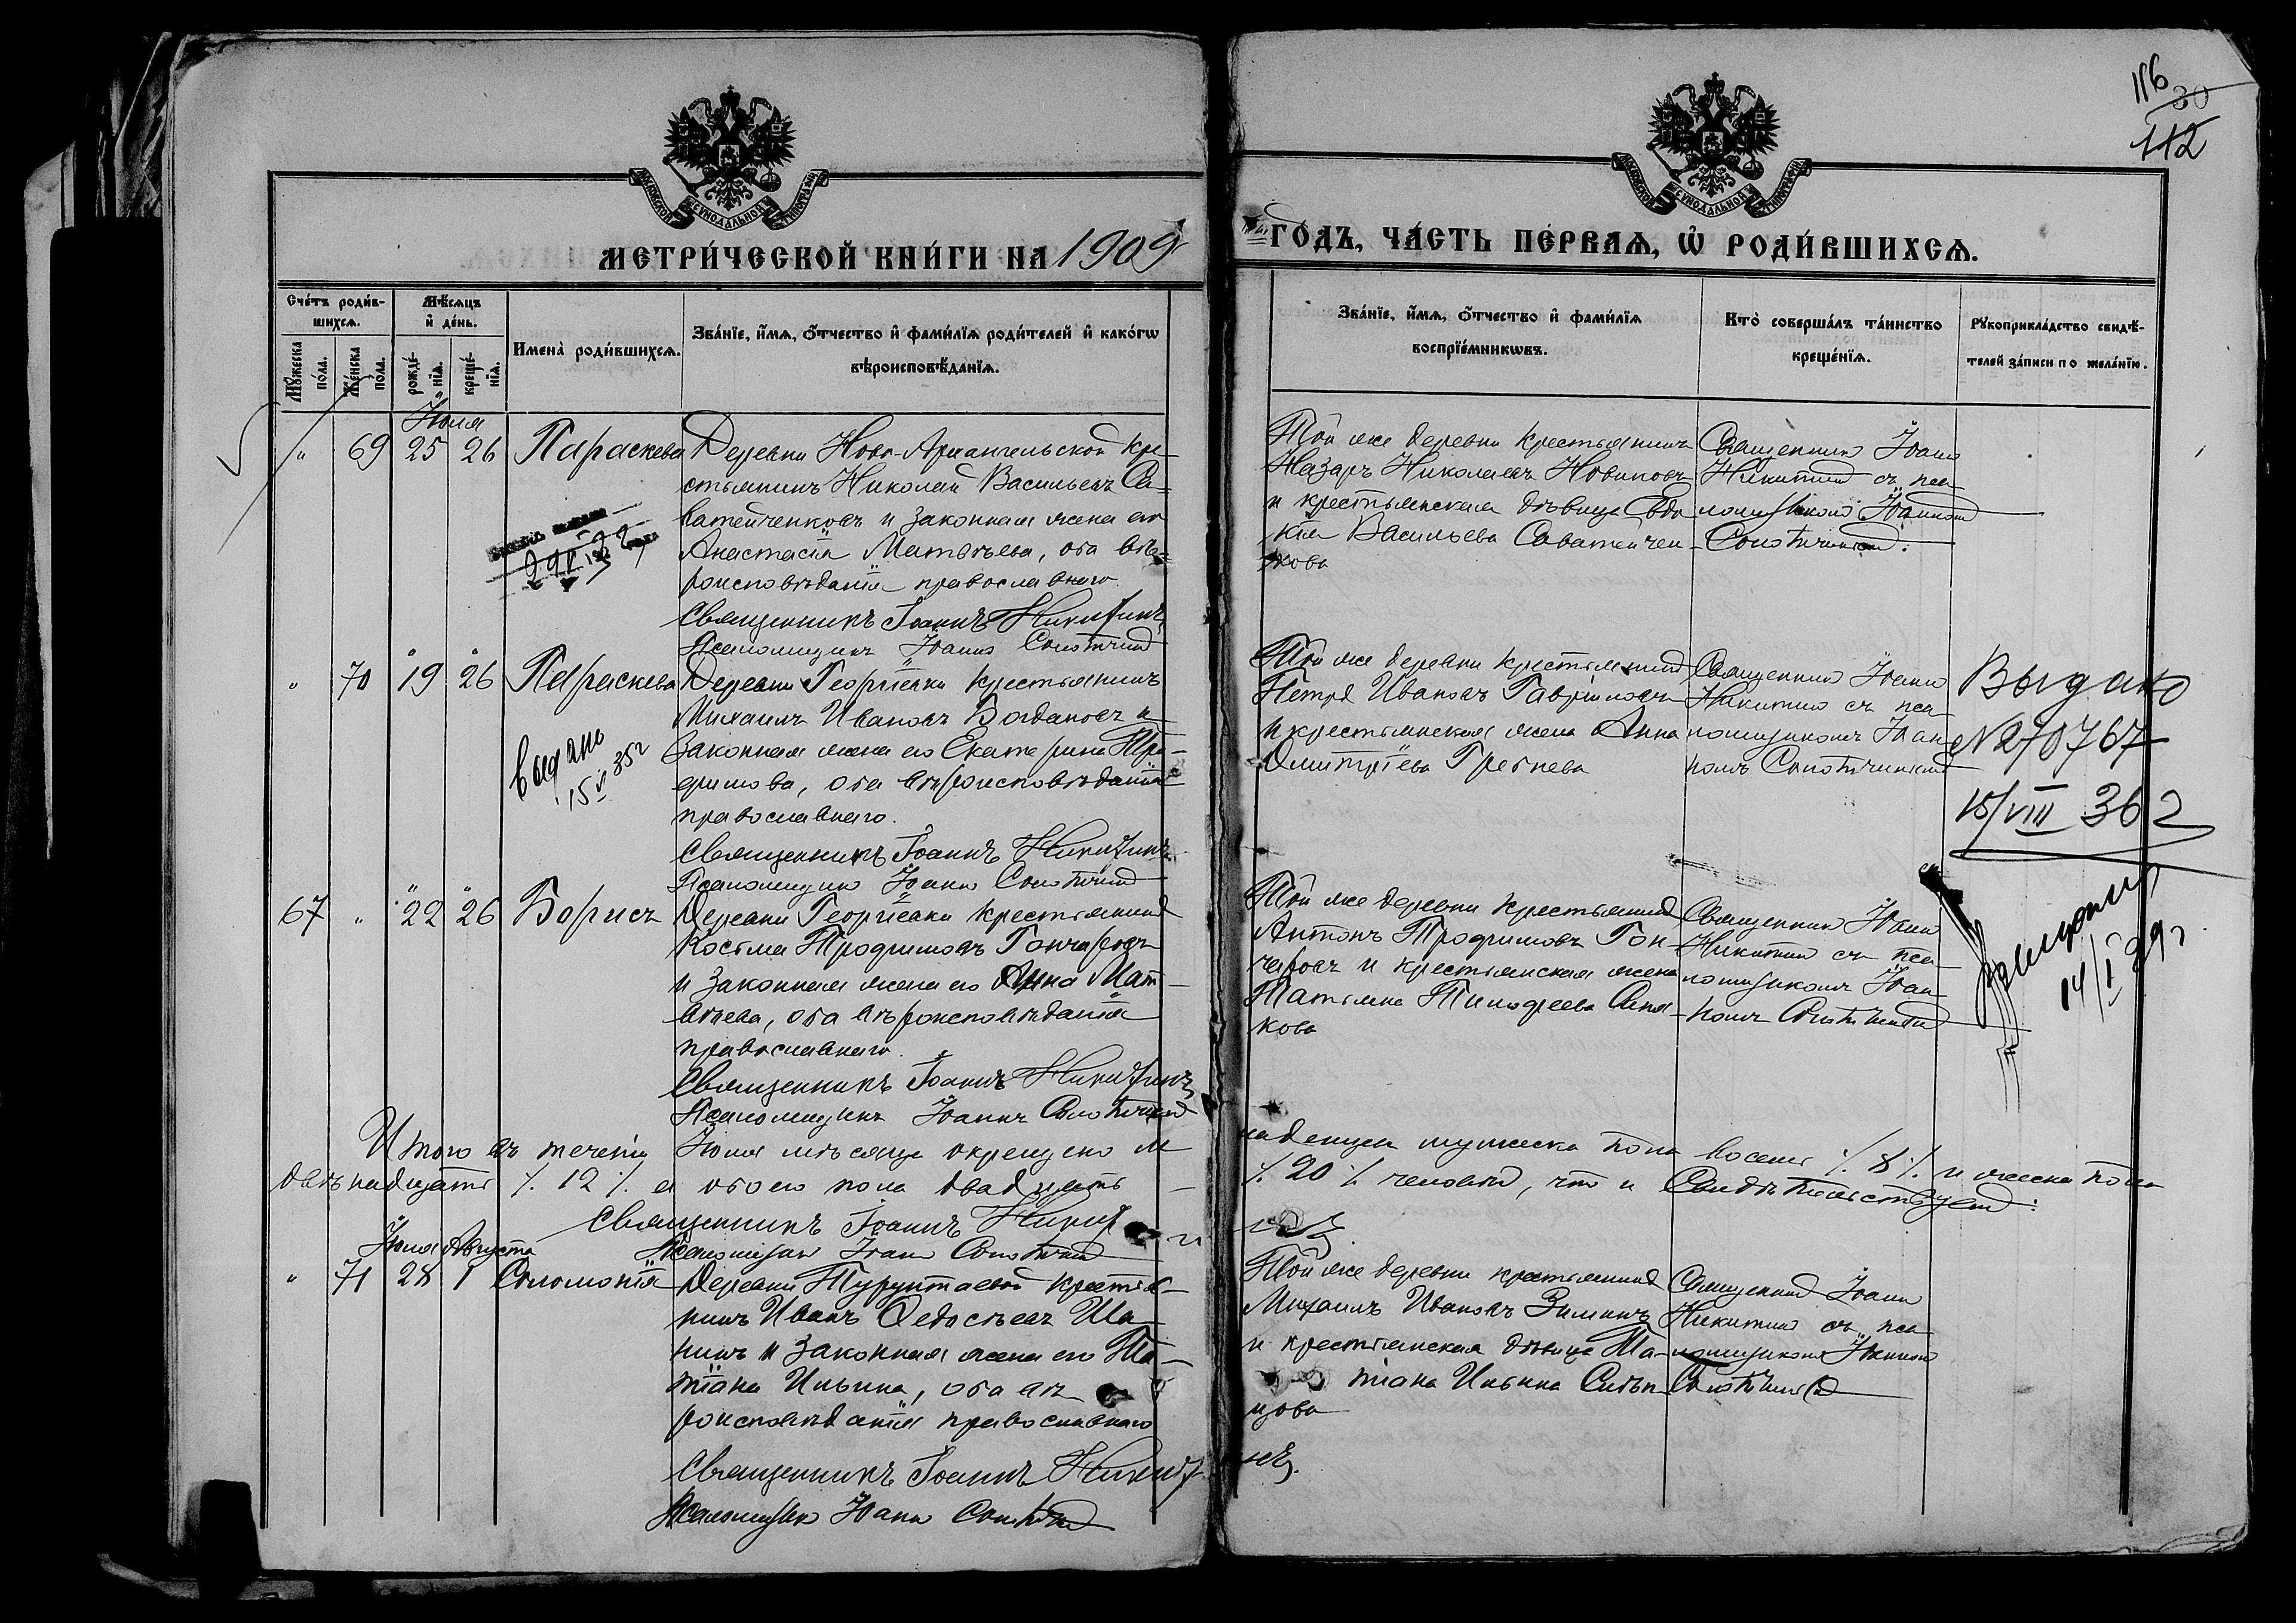 116
30
112
МОСКОВСКОЙ СѴНОДАЛЬНОЙ ТИПОГРАФІИ
МОСКОВСКОЙ СѴНОДАЛЬНОЙ ТИПОГРАФІИ
МЕТРИ́ЧЕСКОЙ КНИ́ГИ НА 1909
ГО́ДЪ, ЧА́СТЬ ПЕ́РВАѦ, Ѡ҆ РОДИ́ВШИХСѦ.
Сче́тъ роди́в-
шихсѧ.
Мꙋ́жеска по́ла.
Же́нска по́ла.
Мѣ́сѧцъ
и҆ де́нь.
рожде́-
нїѧ.
креще́-
нїѧ.
Имена̀ роди́вшихсѧ.
Зва́нїе, и҆́мѧ, ѻ҆́тчество и҆ фами́лїѧ роди́телей и҆ како́гѡ
вѣроисповѣ́данїѧ.
Зва́нїе, и҆́мѧ, ѻ҆́тчество и҆ фами́лїѧ
воспрїе́мникѡвъ.
Кто̀ соверша́лъ та́инство
креще́нїѧ.
Рꙋкоприкла́дство свидѣ́-
телей за́писи по жела́нїю.
Іюля
" 69 25 26 Параскева
Деревни Ново-Архангельской кре-
стьянинъ Николай Васильевъ Са-
ватейченковъ и законная жена его
Анастасія Матвѣева, оба вѣ-
роисповѣданія православнаго.
Священникъ Іоаннъ Никитинъ
Псаломщикъ Іоаннъ
Той же деревни крестьянинъ
Назаръ Николаевъ Новиковъ
и крестьянская дѣвица Евдо
кія Васильева Саватейчен-
кова
Священникъ Іоаннъ
Никитинъ съ пса-
ломщикомъ Іоанномъ
" 70 19 26 Параскева
выдано
15 35г
Деревни Георгіевки крестьянинъ
Михаилъ Ивановъ Богдановъ и
законная жена его Екатерина Тро-
фимова, оба вѣроисповѣданія
православнаго.
Священникъ Іоаннъ Никитинъ
Псаломщикъ Іоаннъ
Той же деревни крестьянинъ
Петръ Ивановъ Гавриловъ
и крестьянская жена Анна
Димитріева Гребнева
Священникъ Іоаннъ
Никитинъ съ пса-
ломщикомъ Іоан-
номъ
Выдано
№270767
15/VIII 36 г
67 " 22 26 Борисъ
Деревни Георгіевки крестьянинъ
Косьма Трофимовъ Гончаровъ
и законная жена его Анна Мат-
вѣева, оба вѣроисповѣданія
православнаго.
Священникъ Іоаннъ Никитинъ
Псаломщикъ Іоаннъ
Той же деревни крестьянинъ
Антонъ Трофимовъ Гон-
чаровъ и крестьянская жена
Татьяна Тимофеева
кова
Священникъ Іоаннъ
Никитинъ съ пса-
ломщикомъ Іоан-
номъ
14/I 39г
Итого въ теченіи Іюля мѣсяца окрещено младенцевъ мужеска пола восемь /. 8 /. и женска пола
двѣнадцать /. 12 /. а обоего пола двадцать /. 20 /. человѣкъ, что и свидѣтельствуемъ:
Священникъ Іоаннъ
Псаломщикъ Іоаннъ
Іюля Августа
" 71 28 1 Соломонія
Деревни Турунтаевой крестья-
нинъ Иванъ Федосѣевъ Ша-
нинъ и законная жена его Та-
тіана Ильина, оба вѣ-
роисповѣданія православнаго
Священникъ Іоаннъ Никитинъ.
Псаломщикъ Іоаннъ
Той же деревни крестьянинъ
Михаилъ Ивановъ Зиминъ
и крестьянская дѣвица Та-
тіана Ильина
цова
Священникъ Іоаннъ
Никитинъ съ пса-
ломщикомъ Іоанномъ